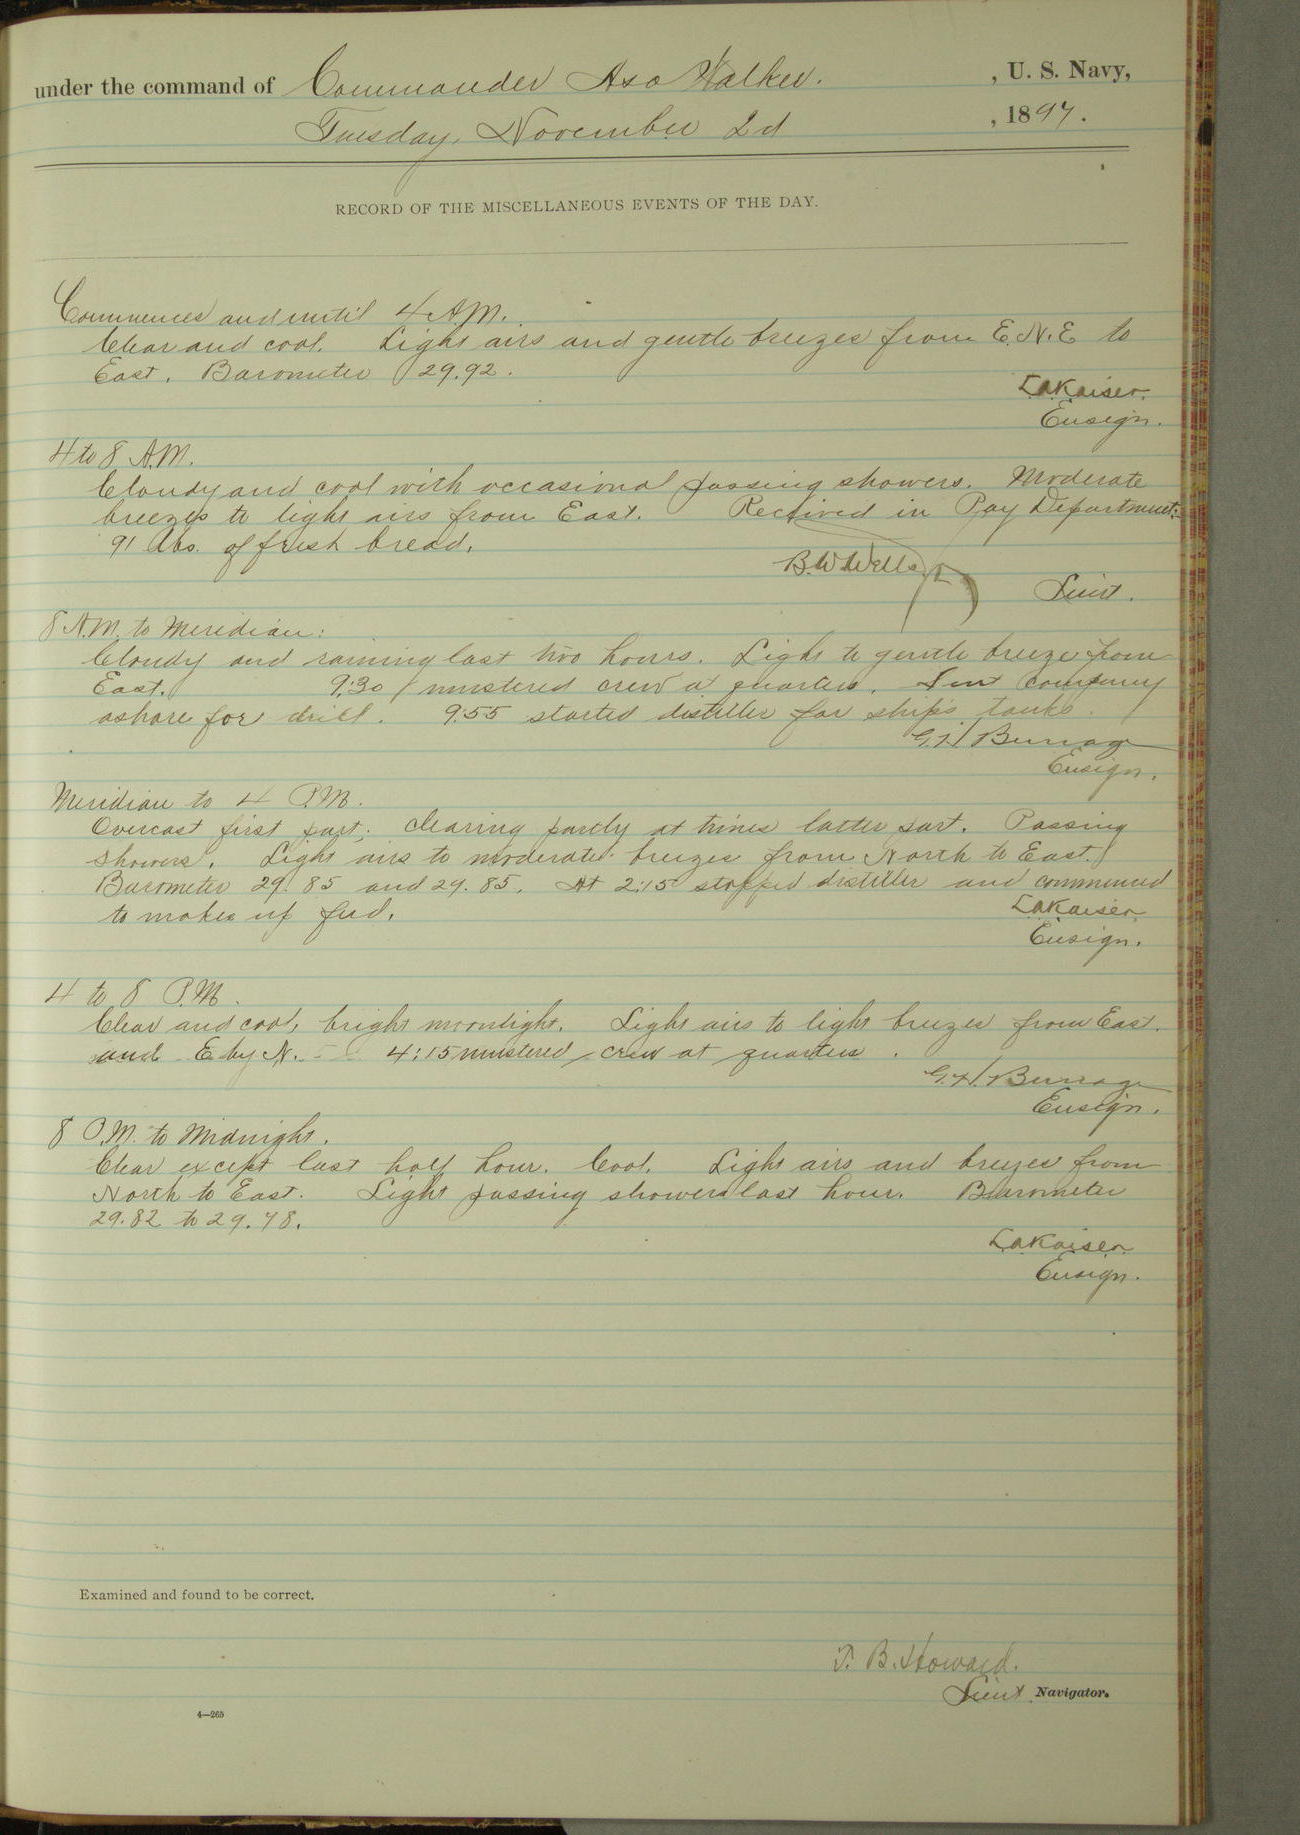 under the command of Commander Asa Walker. , U. S. Navy,
Tuesday, November 2d , 1897.
RECORD OF THE MISCELLANEOUS EVENTS OF THE DAY.
Commences and until 4 A.M.
Clear and cool. Light airs and gentle breezes from E.N.E to
East. Barometer 29.92.
L.A.Kaiser.
Ensign.
4 to 8 A.M.
Cloudy and cool with occasional passing showers. Moderate
breezes to light airs from East. Received in Pay Department:
91 lbs. of fresh bread.
B.W.Wells Jr
Lieut.
8 A.M. to Meridian:
Cloudy and raining last two hours. Light to gentle breeze from
East. 9:30 mustered crew at quarters. Sent company
ashore for drill. 9:55 started distiller for ship's tanks.
G.H. Burrage
Ensign.
Meridian to 4 P.M.
Overcast first part; clearing partly at times latter part. Passing
showers. Light airs to moderate breezes from North to East.
Barometer 29.85 and 29.85. At 2:15 stopped distiller and commenced
to make up feed.
L.A.Kaiser.
Ensign.
4 to 8 P.M.
Clear and cool, bright moonlight. Light airs to light breezes from East.
and E by N. 4:15 mustered crew at quarters.
G.H. Burrage
Ensign.
8 P.M. to Midnight.
Clear except last half hour. Cool. Light airs and breezes from
North to East. Light passing showers last hour. Barometer
29.82 to 29.78.
L.A.Kaiser.
Ensign.
Examined and found to be correct.
T. B. Howard.
Lieut. Navigator.
4—265